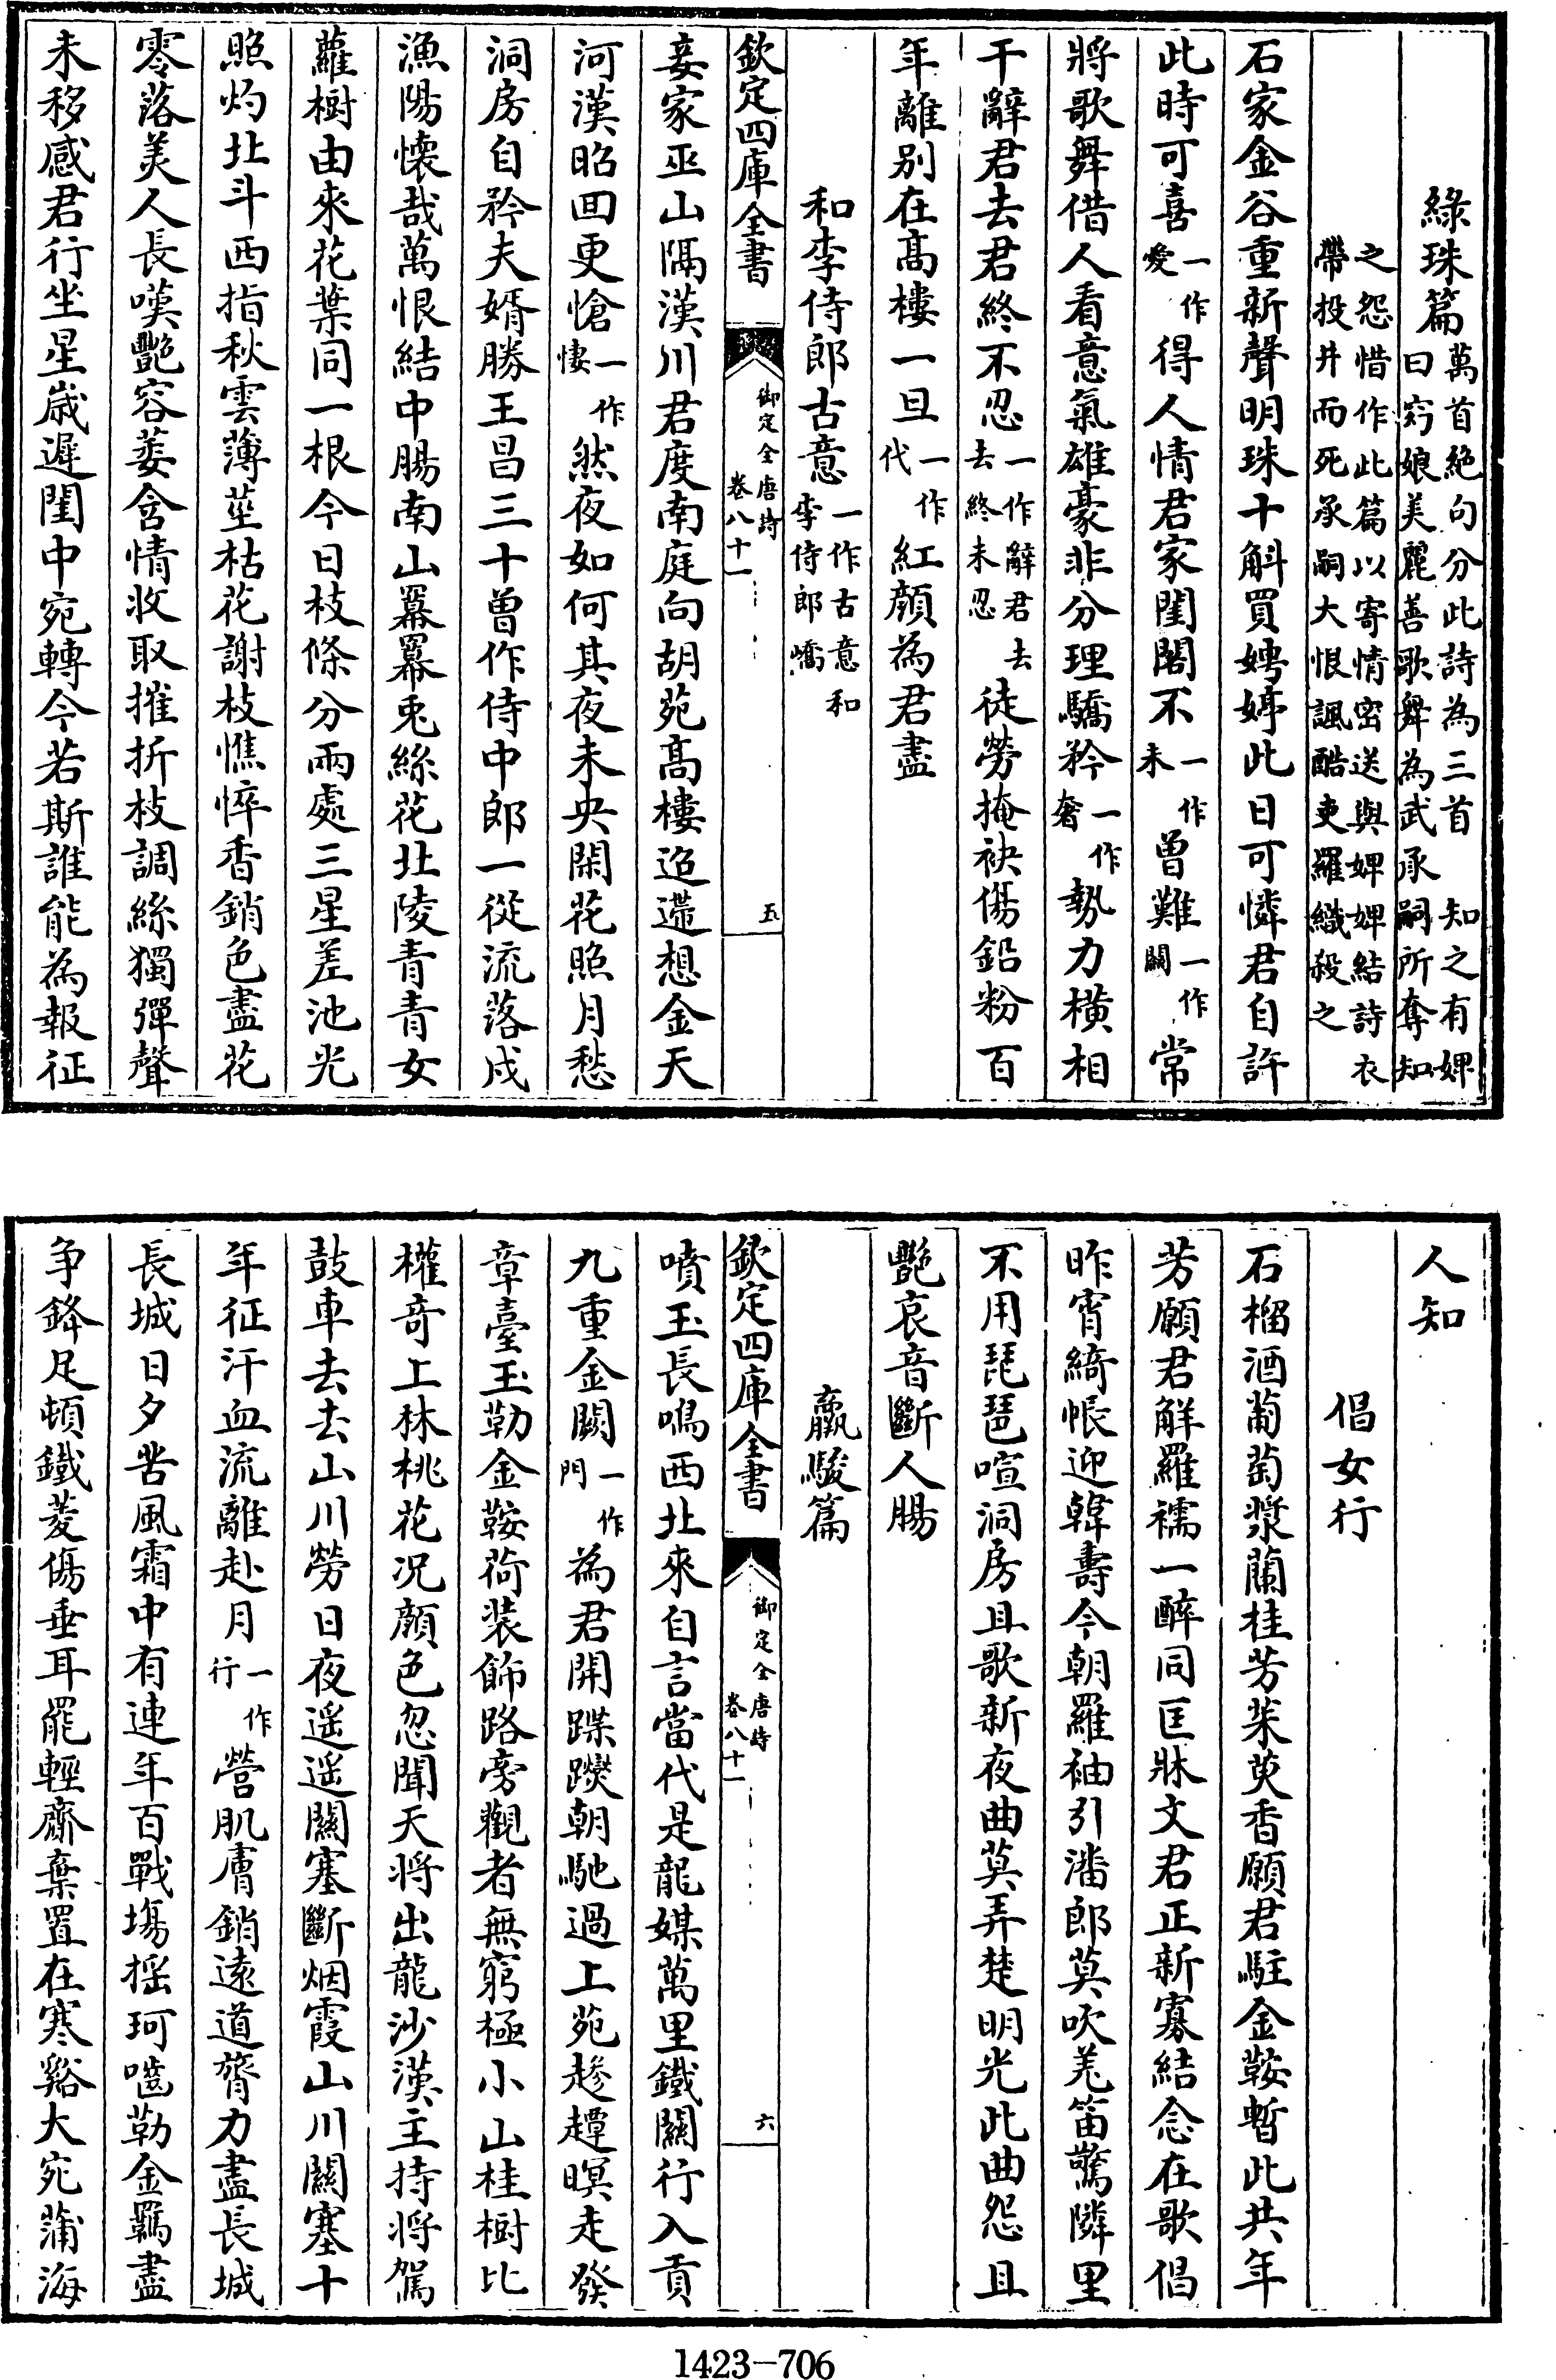 綠珠篇萬首絕句分此詩為三首 知之有婢曰窈娘美麗善歌舞為武承嗣所奪知
之怨惜作此篇以寄情密送與婢婢結詩衣帶投井而死承嗣大恨諷酷吏羅織殺之
石家金谷重新聲明珠十斛買娉婷此日可憐君自許
此時可喜一作愛得人情君家閨閣不一作未曾難一作關常
將歌舞借人看意氣雄豪非分理驕矜一作奢勢力橫相
干辭君去君終不忍一作辭君去去終未忍徒勞掩袂傷鉛粉百
年離別在高樓一旦一作代紅顏為君盡
和李侍郎古意一作古意和李侍郎嶠
欽定四庫全書 御定全唐詩 卷八十一 五
妾家巫山隔漢川君度南庭向胡苑高樓迢遰想金天
河漢昭回更愴一作悽然夜如何其夜未央閑花照月愁
洞房自矜夫婿勝王昌三十曾作侍中郎一從流落戍
漁陽懷哉萬恨結中腸南山羃羃兎絲花北陵青青女
蘿樹由來花葉同一根今日枝條分兩處三星差池光
照灼北斗西指秋雲薄莖枯花謝枝憔悴香銷色盡花
零落美人長嘆艷容萎含情收取摧折枝調絲獨彈聲
未移感君行坐星歲遲閨中宛轉今若斯誰能為報征
人知
倡女行
石榴酒葡萄漿蘭桂芳茱萸香願君駐金鞍暫此共年
芳願君解羅襦一醉同匡牀文君正新寡結念在歌倡
昨宵綺帳迎韓壽今朝羅袖引潘郎莫吹羌笛驚隣里
不用琵琶喧洞房且歌新夜曲莫弄楚明光此曲怨且
艷哀音斷人腸
羸駿篇
欽定四庫全書 御定全唐詩 卷八十一 六
噴玉長鳴西北來自言當代是龍媒萬里鐵關行入貢
九重金闕一作門為君開蹀躞朝馳過上苑趁趯暝走發
章臺玉勒金鞍荷裝飾路旁觀者無窮極小山桂樹比
權奇上林桃花况顏色忽聞天將出龍沙漢主持將駕
鼓車去去山川勞日夜遥遥關塞斷烟霞山川關塞十
年征汗血流離赴月一作行營肌膚銷遠道膂力盡長城
長城日夕苦風霜中有連年百戰塲揺珂嚙勒金羈盡
爭鋒足頓鐵菱傷垂耳罷輕齎棄置在寒谿大宛蒲海
1423-706